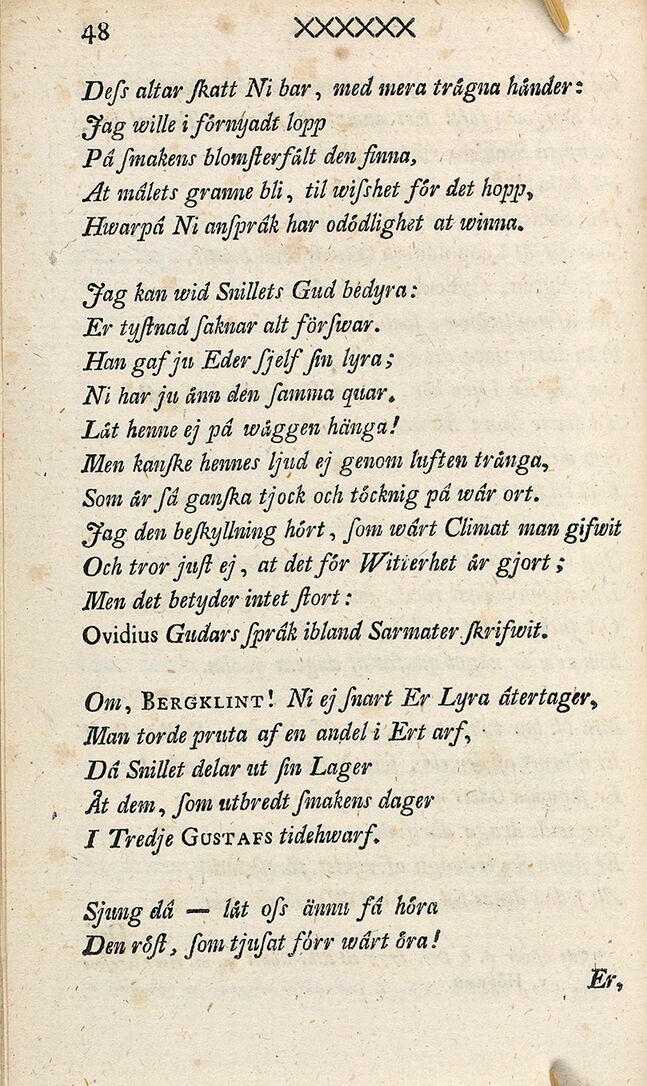 48 XXXXXX
Deſs altar ſkatt Ni bar, med mera trägna händer:
Jag wille i förnyadt lopp
På ſmakens blomſterfält den finna,
At målets granne bli, til wiſshet för det hopp,
Hwarpå Ni anſpråk har odödlighet at winna.
Jag kan wid Snillets Gud bedyra:
Er tyſtnad ſaknar alt förſwar.
Han gaf ju Eder ſjelf ſin lyra;
Ni har ju änn den ſamma quar.
Låt henne ej på wäggen hänga!
Men kanſke hennes ljud ej genom luften tränga,
Som är ſå ganſka tjock och töcknig på wår ort.
Jag den beſkyllning hört, ſom wårt Climat man gifwit
Och tror juſt ej, at det för Witterhet är gjort;
Men det betyder intet ſtort:
Ovidius Gudars ſpråk ibland Sarmater ſkrifwit.
Om, BERGKLINT! Ni ej ſnart Er Lyra återtager,
Man torde pruta af en andel i Ert arf,
Då Snillet delar ut ſin Lager
Åt dem, ſom utbredt ſmakens dager
I Tredje GUSTAFS tidehwarf.
Sjung då — låt oſs ännu få höra
Den röſt, ſom tjuſat förr wårt öra!
Er,